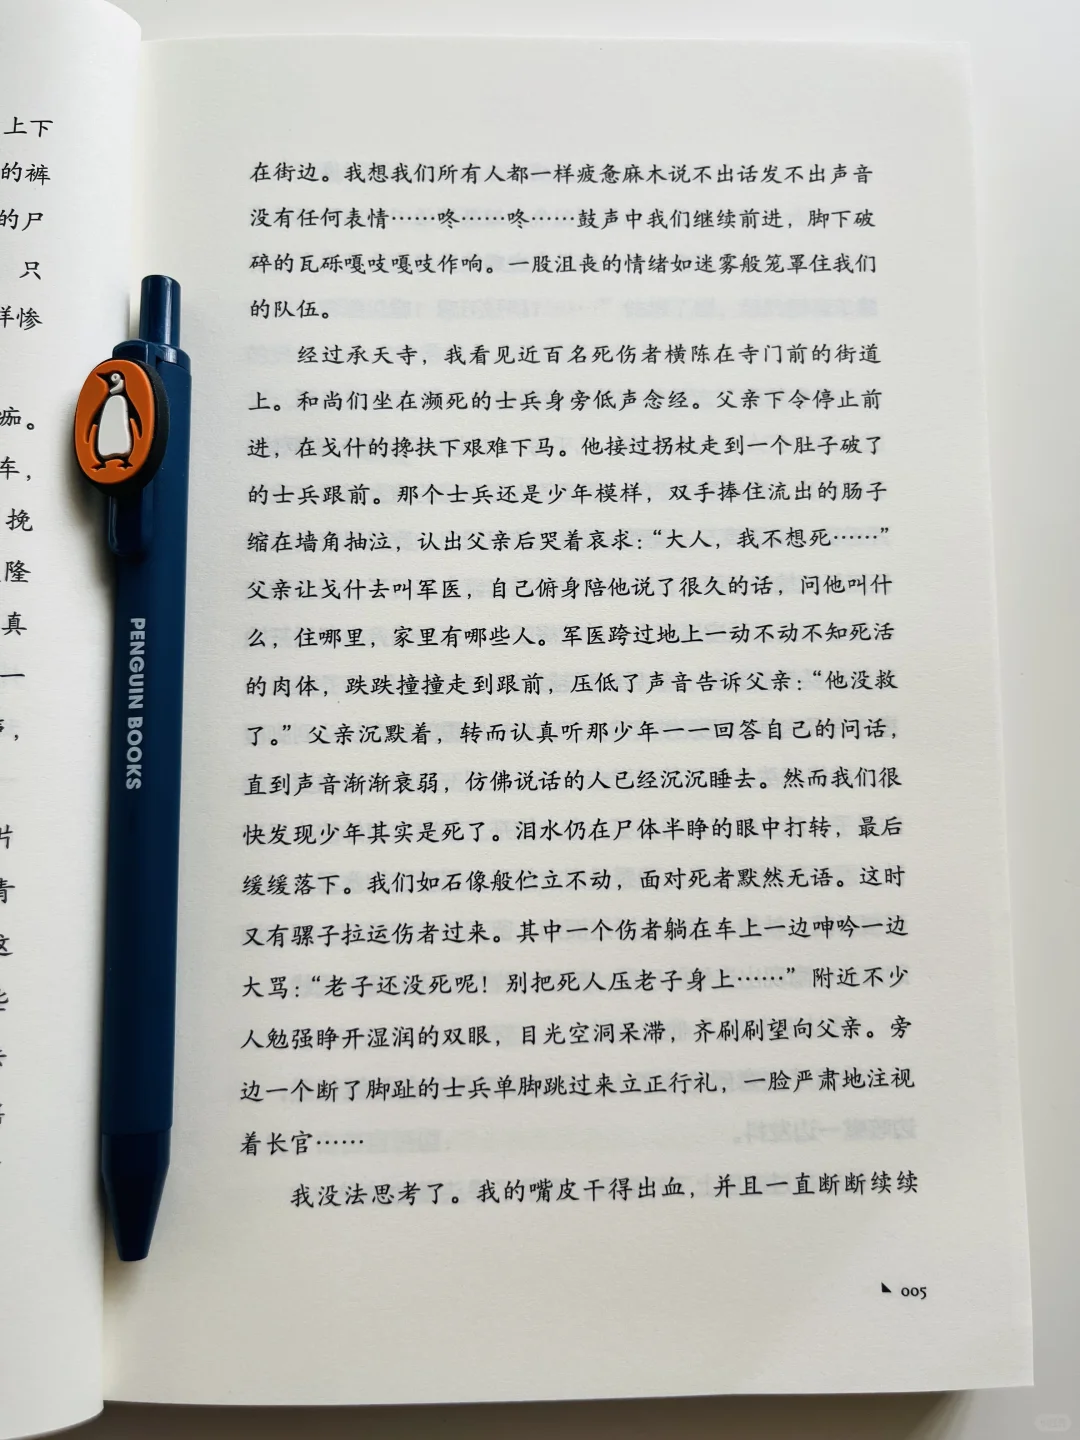 上下
的裤
的尸
只
样惨
痂。
车，
挽
隆
真
一
，
片
青
这
PENGUIN BOOKS
在街边。我想我们所有人都一样疲惫麻木说不出话发不出声音
没有任何表情……咚……咚……鼓声中我们继续前进，脚下破
碎的瓦砾嘎吱嘎吱作响。一股沮丧的情绪如迷雾般笼罩住我们
的队伍。
经过承天寺，我看见近百名死伤者横陈在寺门前的街道
上。和尚们坐在濒死的士兵身旁低声念经。父亲下令停止前
进，在戈什的搀扶下艰难下马。他接过拐杖走到一个肚子破了
的士兵跟前。那个士兵还是少年模样，双手捧住流出的肠子
缩在墙角抽泣，认出父亲后哭着哀求：“大人，我不想死……”
父亲让戈什去叫军医，自己俯身陪他说了很久的话，问他叫什
么，住哪里，家里有哪些人。军医跨过地上一动不动不知死活
的肉体，跌跌撞撞走到跟前，压低了声音告诉父亲：“他没救
了。”父亲沉默着，转而认真听那少年一一回答自己的问话，
直到声音渐渐衰弱，仿佛说话的人已经沉沉睡去。然而我们很
快发现少年其实是死了。泪水仍在尸体半睁的眼中打转，最后
缓缓落下。我们如石像般伫立不动，面对死者默然无语。这时
又有骡子拉运伤者过来。其中一个伤者躺在车上一边呻吟一边
大骂：“老子还没死呢！别把死人压老子身上……”附近不少
人勉强睁开湿润的双眼，目光空洞呆滞，齐刷刷望向父亲。旁
边一个断了脚趾的士兵单脚跳过来立正行礼，一脸严肃地注视
着长官……
我没法思考了。我的嘴皮干得出血，并且一直断断续续
005